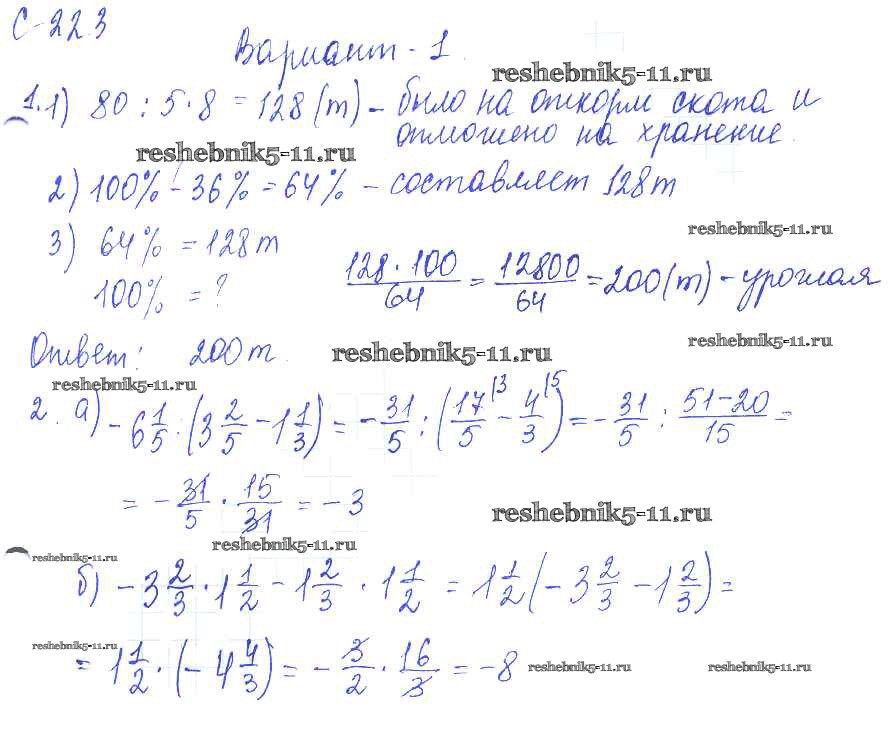 С-22.3
Вариант-1.
reshebnik5-11.ru
1. 1) 80 : 5 · 8 = 128 (т) - было на откорм скота и
отмошено на хранение.
reshebnik5-11.ru
2) 100% - 36% = 64% - составляет 128 т
reshebnik5-11.ru
3) 64% = 128 т
100% = ? 128 · 100/64 = 12800/64 = 200 (т) - урожая
reshebnik5-11.ru
Ответ: 200 т. reshebnik5-11.ru
reshebnik5-11.ru
2. а) - 6 1/5 : (3 2/5 - 1 1/3) = - 31/5 : (17/5 |3 - 4/3 |5) = - 31/5 : 51-20/15 =
= - 31/5 · 15/31 = -3
reshebnik5-11.ru
reshebnik5-11.ru
reshebnik5-11.ru
б) - 3 2/3 · 1 1/2 - 1 2/3 · 1 1/2 = 1 1/2 (- 3 2/3 - 1 2/3) =
reshebnik5-11.ru
= 1 1/2 · (- 4 4/3) = - 3/2 · 16/3 = -8 reshebnik5-11.ru reshebnik5-11.ru